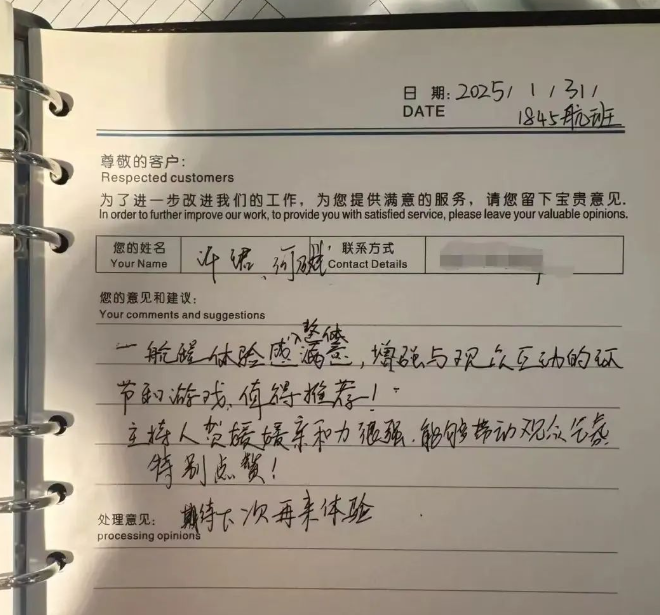 日 期: 2025/1/31/
DATE
1845航班
尊敬的客户:
Respected customers
为了进一步改进我们的工作, 为您提供满意的服务, 请您留下宝贵意见.
In order to further improve our work, to provide you with satisfied service, please leave your valuable opinions.
您的姓名 许 、何 联系方式
Your Name Contact Details
您的意见和建议:
Your comments and suggestions
整体
一舱 体验感满意, 增强与观众互动的环
节和游戏、值得推荐!
主持人贺媛媛亲和力很强、能够带动观众气氛
特别点赞!
处理意见: 期待下次再来体验
processing opinions